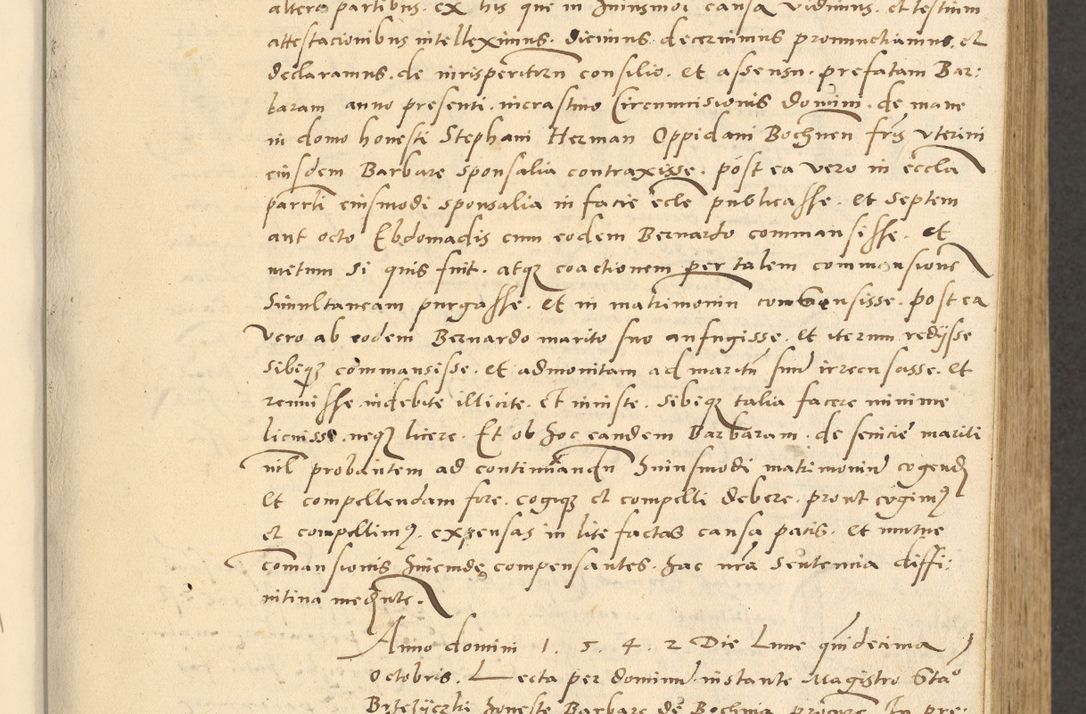 altera partibus. ex his que in huiusmodi causa vidimus. et testium
attestacionibus intelleximus. dicimus. decernimus pronunctiamus. et
declaramus. de iurisperitorum consilio. et assensu. prefatam Bar:
baram anno presenti. in crastino Circumcisionis domini. de mane
in domo honesti Stephani Herman Oppidani Bochnen frīs vterini
eiusdem Barbare sponsalia contraxisse. post ea vero in eccla
parrti eiusmodi sponsalia in facie ecle publicasse. et Septem
aut octo Ebdomadis cum eodem Bernardo commansisse. et
metum si quis fuit. atqꝫ coactionem per talem commansione
Simultaneam purgasse. et in matrimoniu consensisse. post ea
vero ab eodem Bernardo marito suo aufugisse. et iterum redijsse
sibiqꝫ commansisse. et admonitam ad maritu suu irrecusasse. et
renuisse indebite illicite. et iniuste. sibiqꝫ talia facere minime
licuisse. neqꝫ licere. Et ob hoc eandem Barbaram. de seuicie mariti
nil probantem ad continuandu huiusmodi matrimoniu cogend
et compellendam fore. cogiqꝫ et compelli debere. prout cogimꝰ
et compellimꝰ. expensas in lite factas causa pacis. et mutue
comansionis huiusmodi compensantes. hac nra Sententia diffi:
nitiua mediante.
Anno domini 1. 5. 4. 2 Die Lune quindecima
Octobris. Lecta per dominu instante Magistro Sta°
Brzezyczki honeste Barbare de Bochnia procure. In pre: